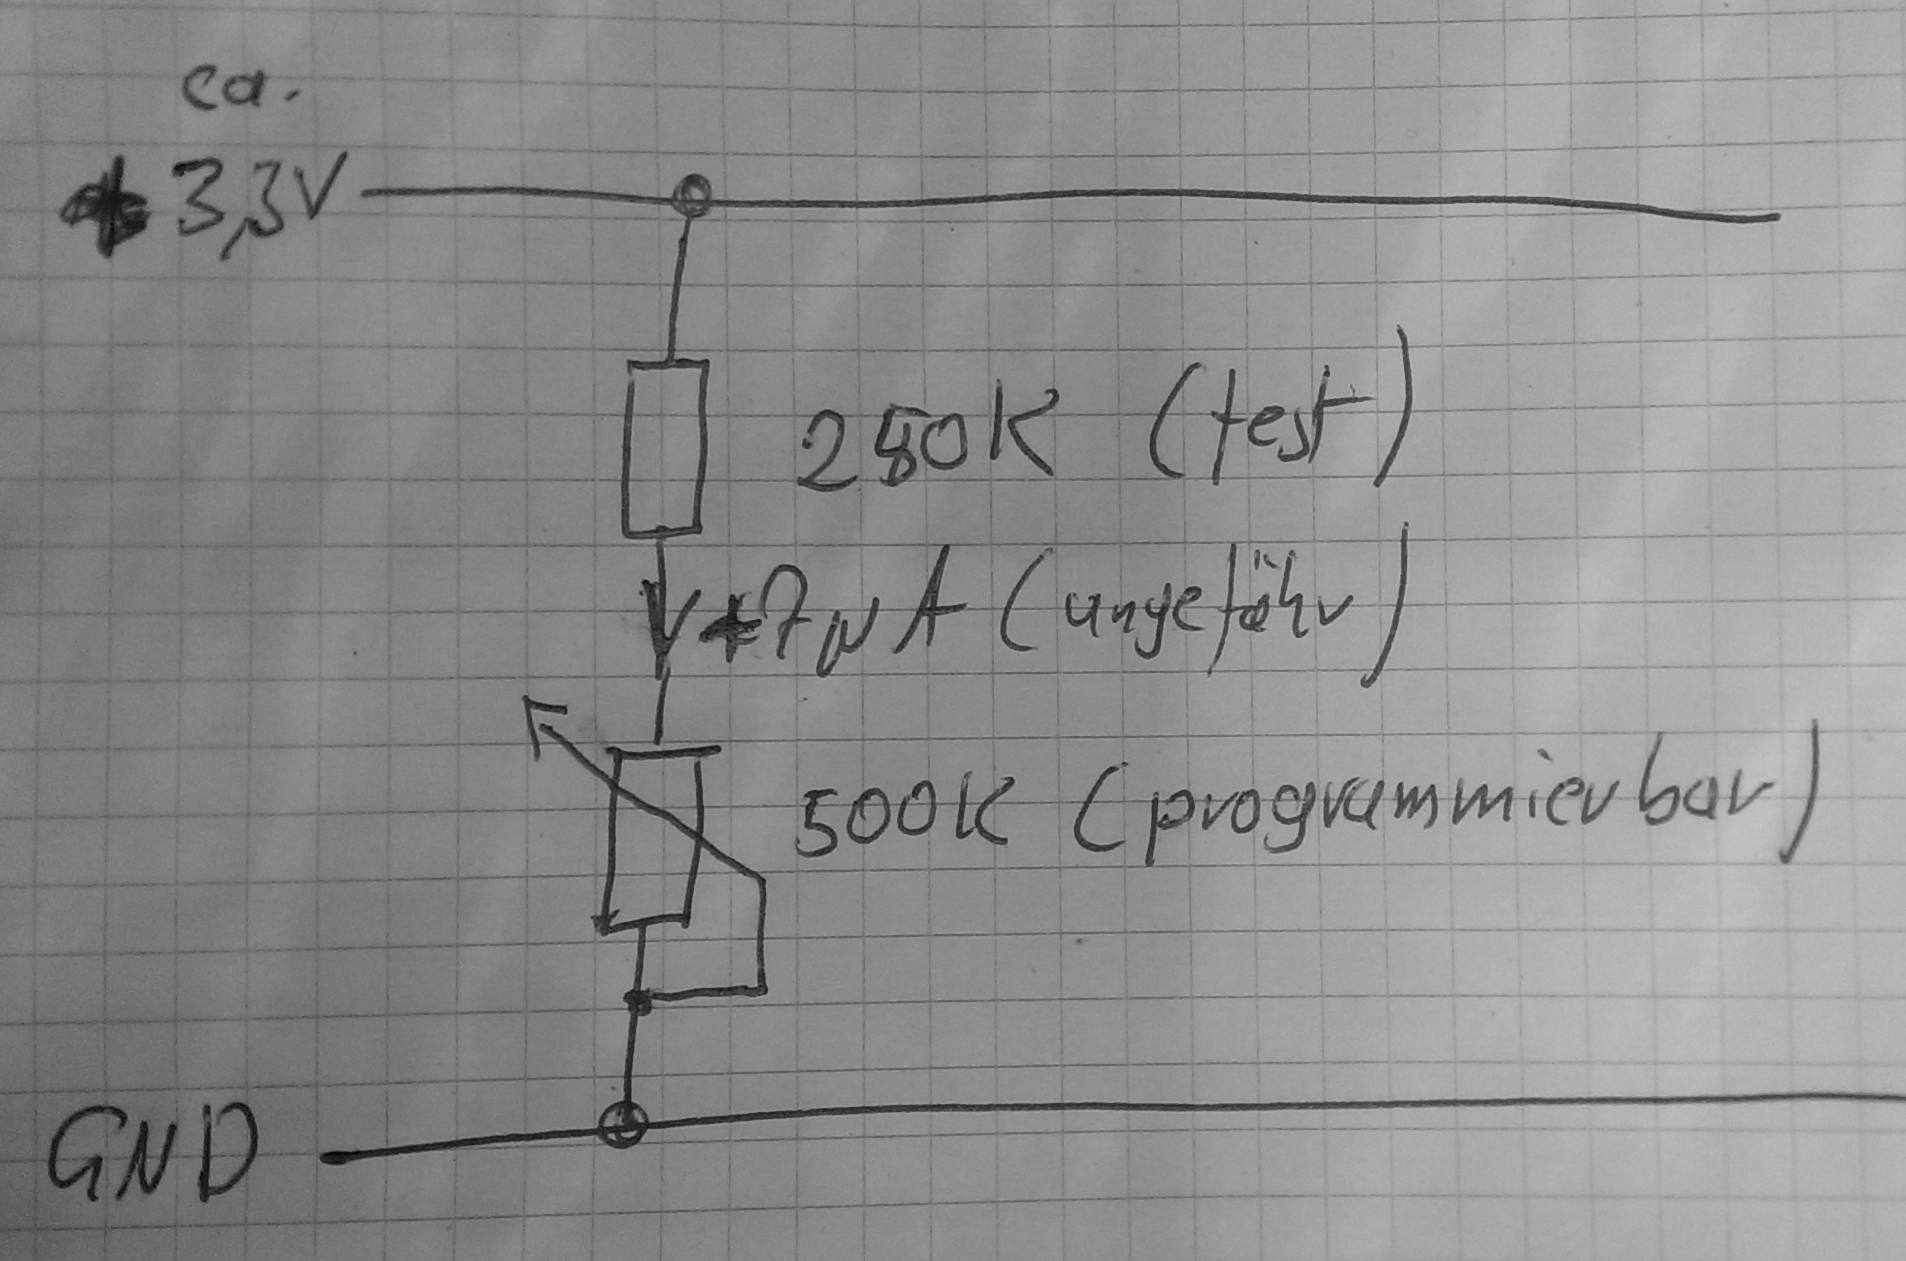 ca.
+ 3,3V
280K (test)
7µA (ungefähr)
500K (programmierbar)
GND